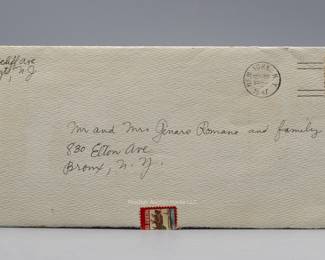 cliff Ave
N.J
NEW YORK, N.Y.
Mr and Mrs Genaro Romano and family
830 Elton Ave
Bronx, N.Y.